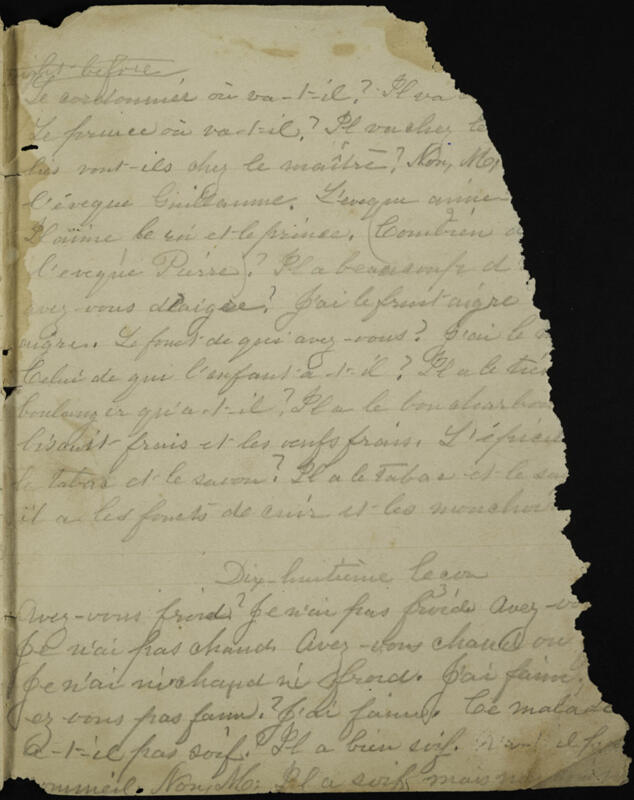 before
Le cordonnier où va-t-il? Il va
Le prince où va-t-il? Il va chez le
vont-ils chez le maître? Non, M,
l'éveque Guillaume. L'eveque aime
Il aime le roi et le prince. Combien d
l'eveque Pierre? Il a beaucoup d
avez-vous d'aigre? J'ai le fruit aigre
aigre. Le fouet de qui avez-vous? J'ai le
Celui de qui l'enfant a-t-il? Il a le
boulanger qu'a-t-il? Il a le bon charbon
biscuit frais et les oeufs frais. L'épicier
le tabac et le savon? Il a le tabac et le sa
il a les fouets de cuir et les mouchoi
Dix-huitième leçon
Avez-vous froid? Je n'ai pas froid. Avez-vo
Je n'ai pas chaud. Avez-vous chaud ou
Je n'ai ni chaud ni froid. J'ai faim.
ez-vous pas faim? J'ai faim. Le malade
a-t-il pas soif? Il a bien soif.
sommeil. Non, M. Il a soif mais